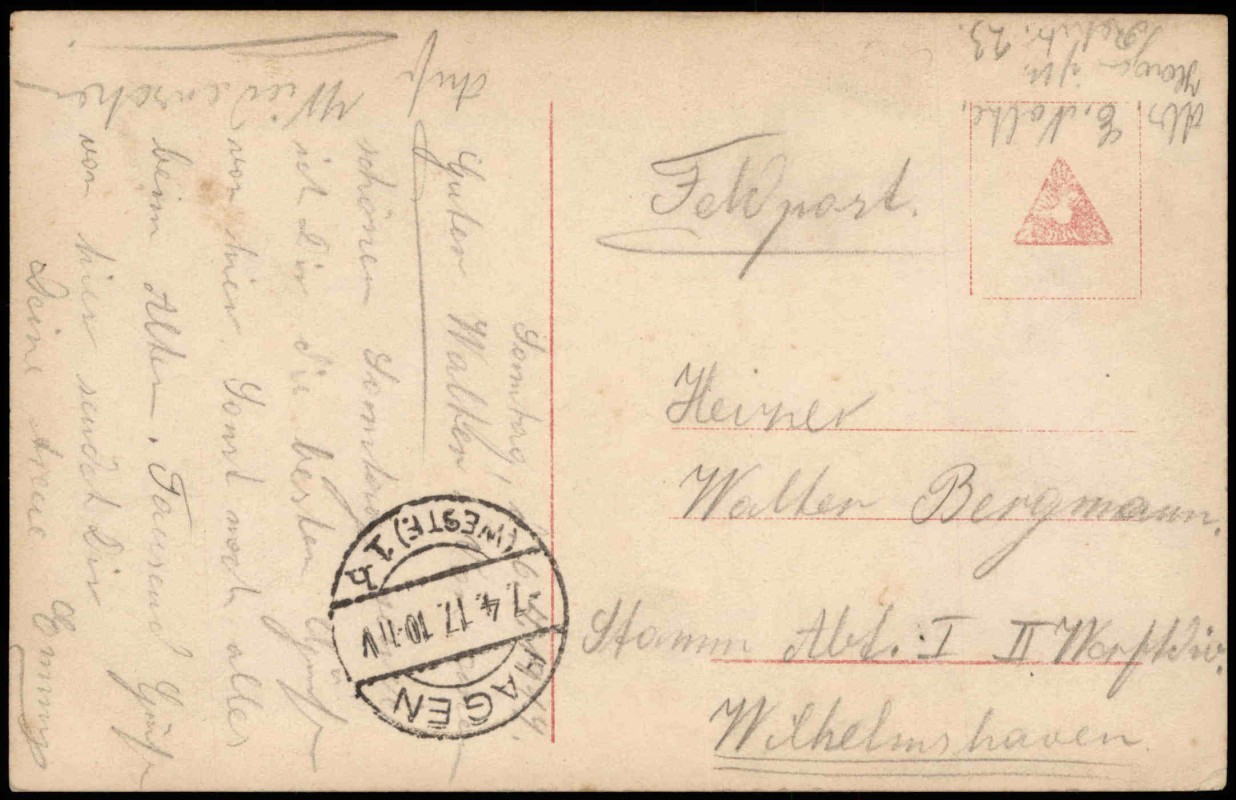 Abs. E. Nolte,
Hagen i/W.
23.
Feldpost.
Heizer
Walter Bergmann.
Stamm Abt. I II Werftdiv.
Wilhelmshaven
HAGEN
(WESTF.) 1 h
7.4.17. 10-11V
Sonntag,
Guter Walter
schönen Sonntag
ich Dir die besten Grüße
von hier. Sonst noch alles
beim Alten. Tausend Grüße
von hier sendet Dir
Deine treue Emmy
Auf
Wiedersehen